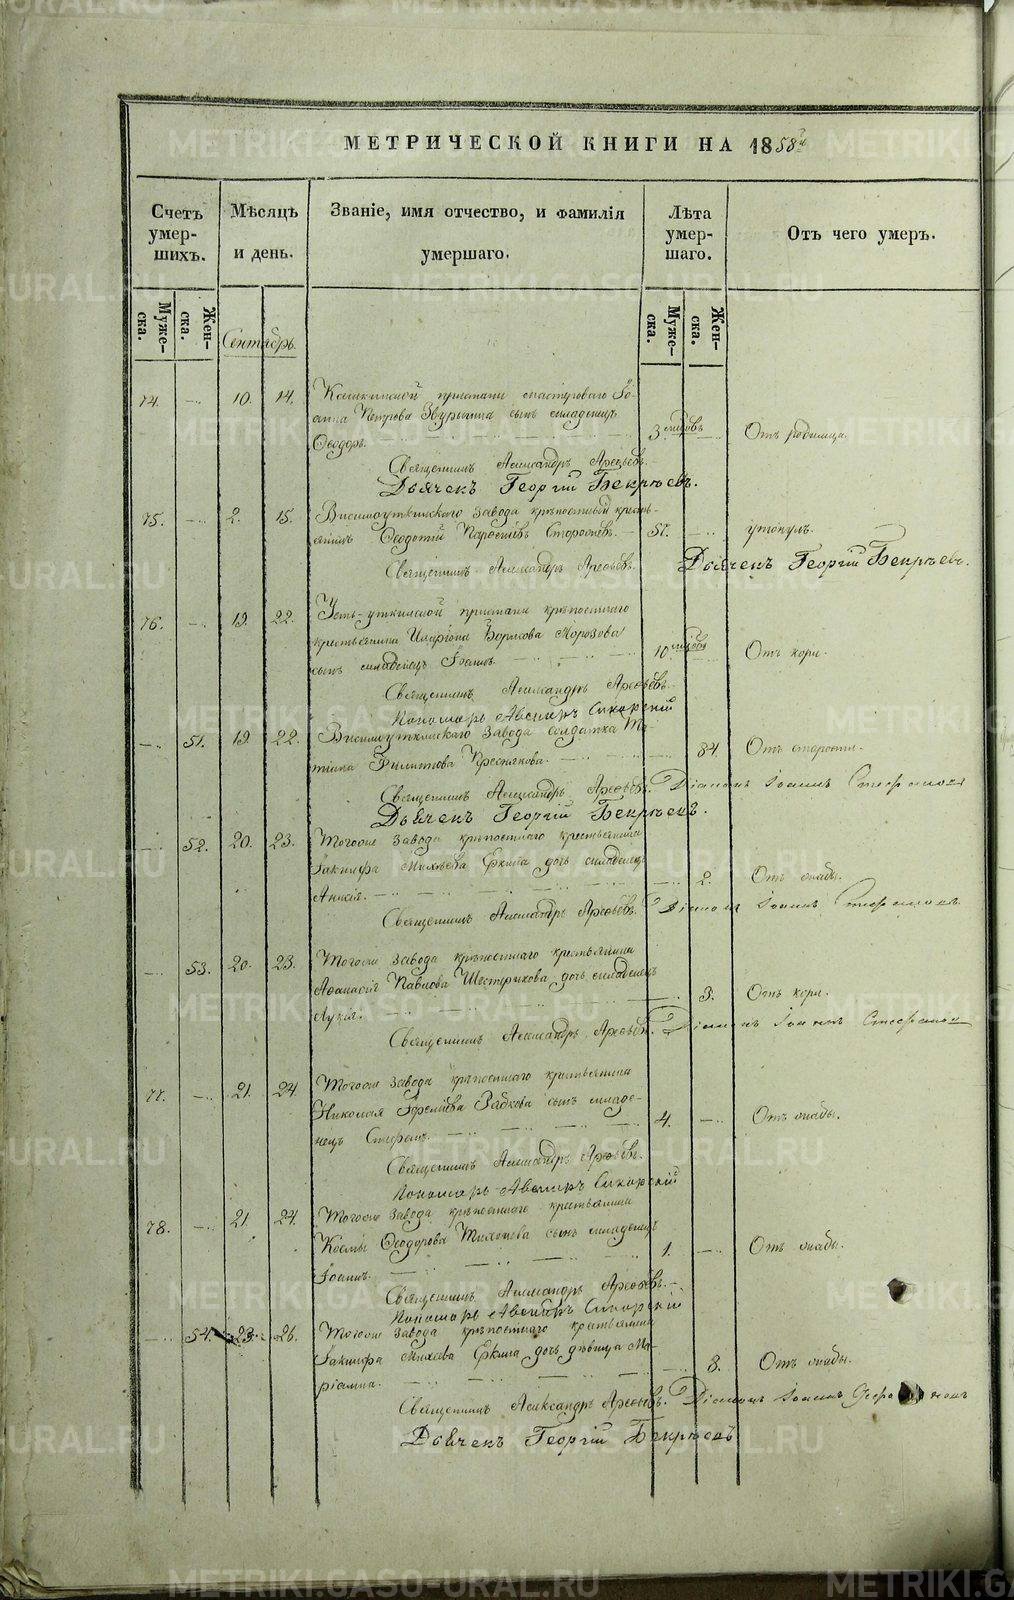 МЕТРИЧЕСКОЙ КНИГИ НА 1858й
Счетъ умер-шихъ.
Мѣсяцъ и день.
Званіе, имя отчество, и фамилія умершаго.
Лѣта умер-шаго.
Отъ чего умеръ.
Муже-ска.
Жен-ска.
Муже-ска.
Жен-ска.
Сентябрь
74. 10. 14. пристани мастероваго Іо-
анна Петрова сынъ младенецъ
Ѳеодоръ. 3 мѣсяцовъ Отъ родимца.
Священникъ Александръ
Дьячекъ Георгій Бекрѣевъ.
75. 2. 15. Висимоуткинскаго завода крѣпостный кресть-
янинъ Ѳеодотій 57. утонулъ.
Священникъ Александръ Дьячекъ Георгій Бекрѣевъ.
76. 19. 22. Усть-уткинской пристани крѣпостнаго
крестьянина Иларіона Борисова Морозова
сынъ младенецъ Іоаннъ. 10 мѣсяцовъ Отъ кори.
Священникъ Александръ
Пономарь Авениръ Сикорскій
51. 19. 22. Висимоуткинскаго завода солдатка Та-
тіана Филиппова Преснякова. 84. Отъ старости.
Священникъ Александръ Діаконъ Іоаннъ Стефановъ
Дьячекъ Георгій Бекрѣевъ.
52. 20. 23. Тогоже завода крѣпостнаго крестьянина
Іакинфа дочь младенецъ
Анисія. 2. Отъ оспы.
Священникъ Александръ Діаконъ Іоаннъ Стефановъ
53. 20. 23. Тогоже завода крѣпостнаго крестьянина
Аѳанасія Павлова Шестерикова дочь младенецъ
Лукія. 3. Отъ кори.
Священникъ Александръ Діаконъ Іоаннъ Стефановъ
77. 21. 24. Тогоже завода крѣпостнаго крестьянина
Николая сынъ младе-
нецъ Стефанъ. 4. Отъ оспы.
Священникъ Александръ
Пономарь Авениръ Сикорскій
78. 21. 24. Тогоже завода крѣпостнаго крестьянина
Космы Ѳеодорова сынъ младенецъ
Іоаннъ. 1. Отъ оспы.
Священникъ Александръ
Пономарь Авениръ Сикорскій
54. 23. 26. Тогоже завода крѣпостнаго крестьянина
Іакинфа дочь дѣвица Ма-
ріамна. 8. Отъ оспы.
Священникъ Александръ Діаконъ Іоаннъ Стефановъ
Дьячекъ Георгій Бекрѣевъ
METRIKI.GASO-URAL.RU